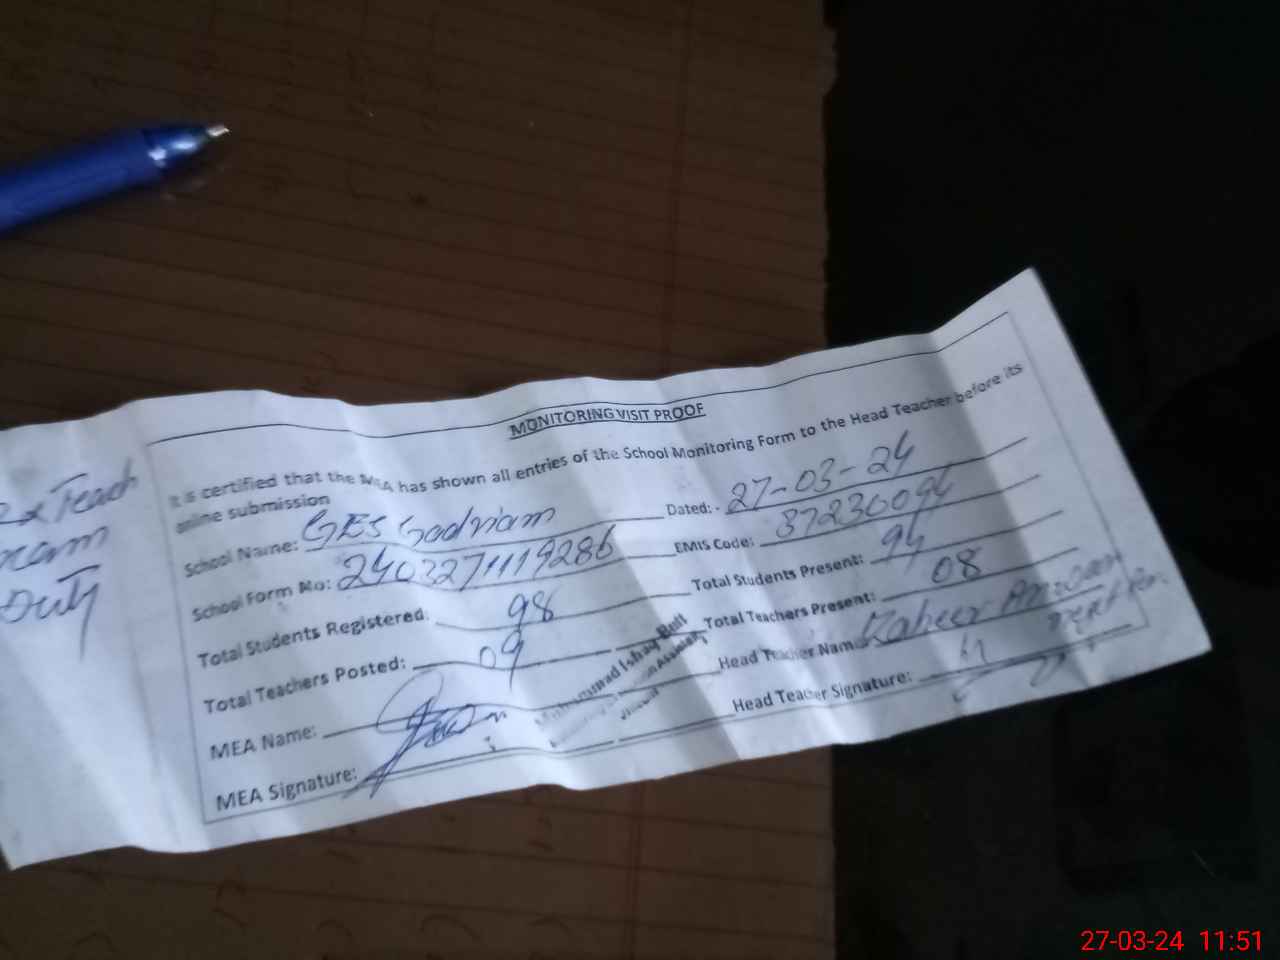 MONITORING VISIT PROOF
It is certified that the MEA has shown all entries of the School Monitoring Form to the Head Teacher before its
online submission
School Name: GES Dated: - 27-03-24
School Form No: 2403271119286 EMIS Code: 37230094
Total Students Registered: 98 Total Students Present: 94
Total Teachers Posted: 09 Total Teachers Present: 08
MEA Name: Head Teacher Name: Kabeer
MEA Signature: Head Teacher Signature:
Muhammad Ishaq Butt
Teach
Duty
27-03-24 11:51